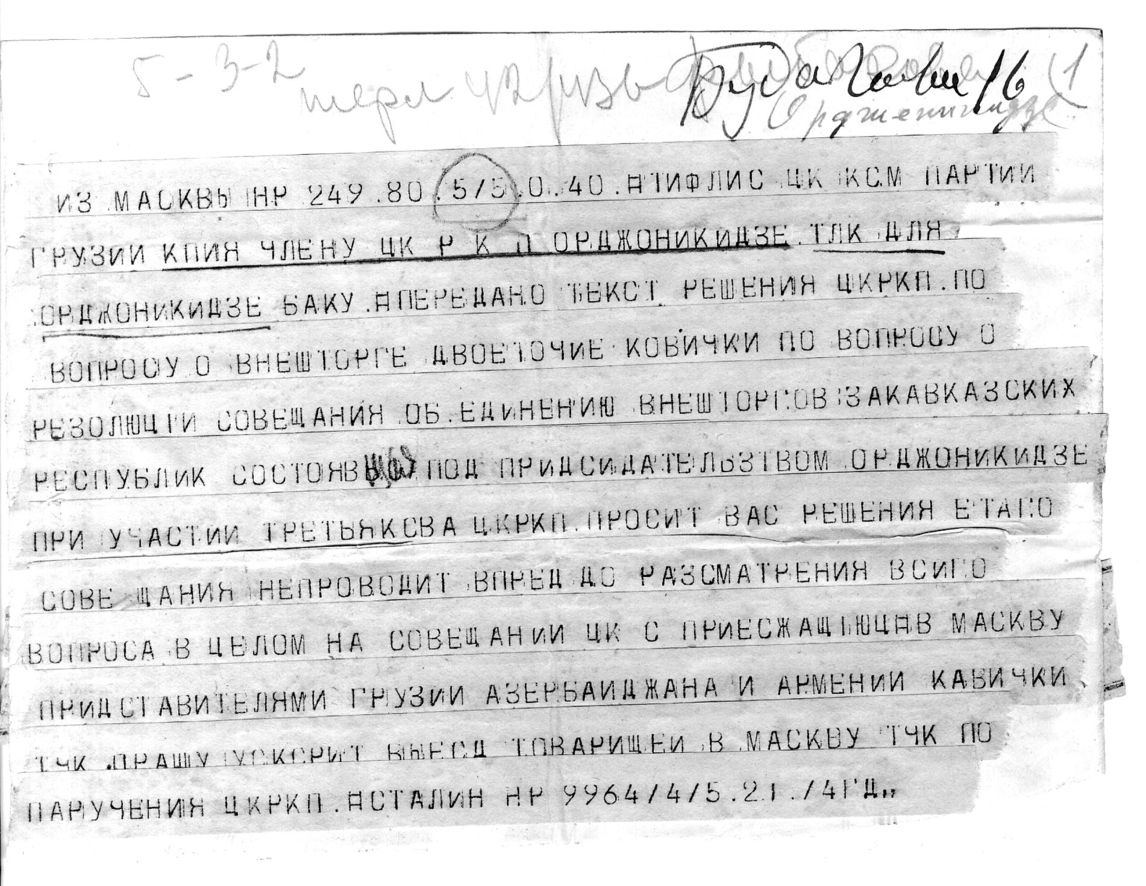 5-3-2
Орджоникидзе
ИЗ МАСКВЫ НР 249 .80 .5/5 .0 .40 .ТИФЛИС ЦК КСМ ПАРТИИ
ГРУЗИИ КПИЯ ЧЛЕНУ ЦК Р К П ОРДЖОНИКИДЗЕ .ТЛК ДЛЯ
ОРДЖОНИКИДЗЕ БАКУ . ПЕРЕДАНО ТЕКСТ РЕШЕНИЯ ЦКРКП .ПО
ВОПРОСУ О ВНЕШТОРГЕ ДВОЕТОЧИЕ КОВИЧКИ ПО ВОПРОСУ О
РЕЗОЛЮЦИИ СОВЕЩАНИЯ ОБ.ЕДИНЕНИЮ ВНЕШТОРГОВ ЗАКАВКАЗСКИХ
РЕСПУБЛИК ПОД ПРИДСИДАТЕЛЬЗТВОМ ОРДЖОНИКИДЗЕ
ПРИ УЧАСТИИ ТРЕТЬЯКСВА ЦКРКП .ПРОСИТ ВАС РЕШЕНИЯ ЕТАГО
СОВЕ ЩАНИЯ НЕПРОВОДИТ ВПРЕД ДО РАЗСМАТРЕНИЯ ВСИГО
ВОПРОСА В ЦЕЛОМ НА СОВЕЩАНИИ ЦК С МАСКВУ
ПРИДСТАВИТЕЛЯМИ ГРУЗИИ АЗЕРБАИДЖАНА И АРМЕНИИ КАВИЧКИ
ТЧК ПРАШУ УСКСРИТ ВЫЕСД ТОВАРИЩЕИ В МАСКВУ ТЧК ПО
ПАРУЧЕНИЯ ЦКРКП .СТАЛИН НР 9964/4/5.21./4ГД,,